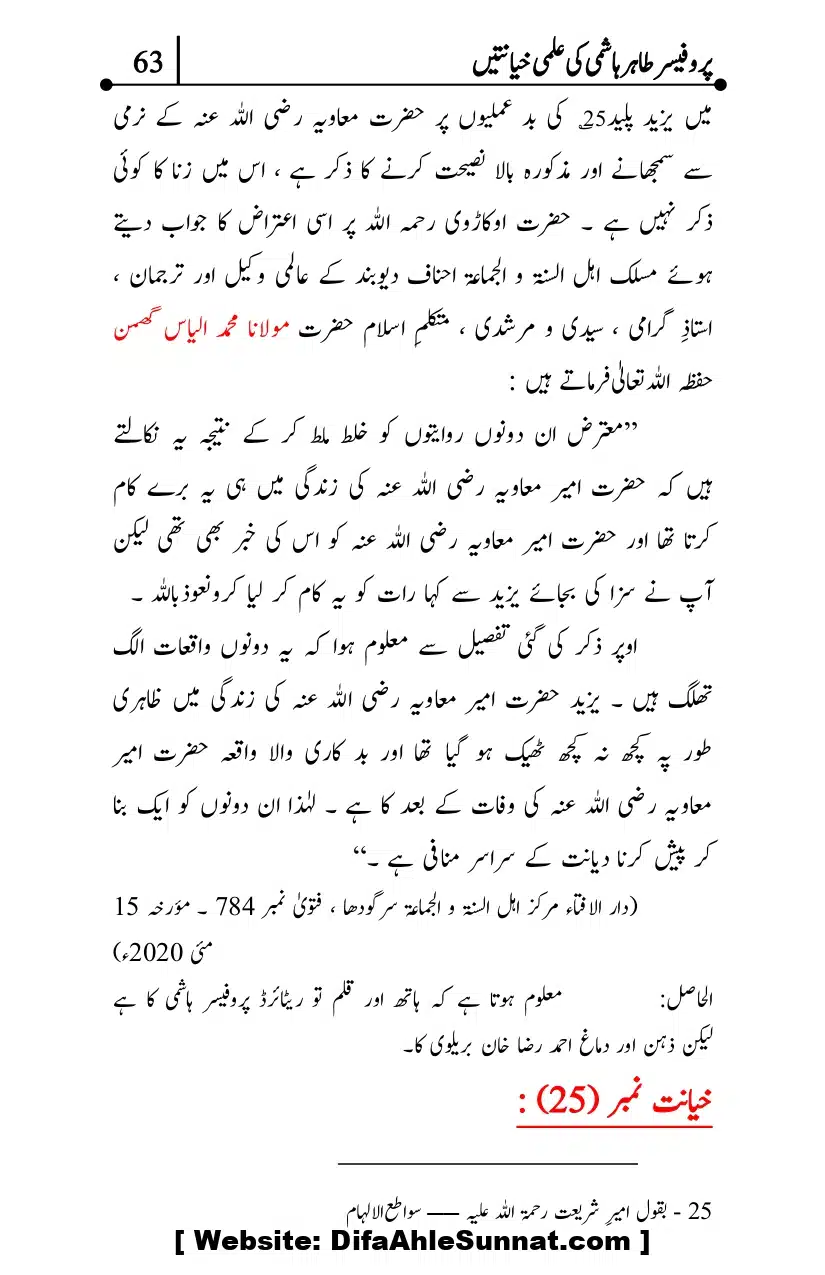 پروفیسر طاہر ہاشمی کی علمی خیانتیں 63
میں یزید پلید25؎ کی بد عملیوں پر حضرت معاویہ رضی اللہ عنہ کے نرمی
سے سمجھانے اور مذکورہ بالا نصیحت کرنے کا ذکر ہے ، اس میں زنا کا کوئی
ذکر نہیں ہے ۔ حضرت اوکاڑوی رحمہ اللہ پر اسی اعتراض کا جواب دیتے
ہوئے مسلک اہل السنۃ و الجماعۃ احناف دیوبند کے عالمی وکیل اور ترجمان ،
استاذِ گرامی ، سیدی و مرشدی ، متکلمِ اسلام حضرت مولانا محمد الیاس گھمن
حفظہ اللہ تعالیٰ فرماتے ہیں :
”معترض ان دونوں روایتوں کو خلط ملط کر کے نتیجہ یہ نکالتے
ہیں کہ حضرت امیر معاویہ رضی اللہ عنہ کی زندگی میں ہی یہ برے کام
کرتا تھا اور حضرت امیر معاویہ رضی اللہ عنہ کو اس کی خبر بھی تھی لیکن
آپ نے سزا کی بجائے یزید سے کہا رات کو یہ کام کر لیا کرونعوذ باللہ ۔
اوپر ذکر کی گئی تفصیل سے معلوم ہوا کہ یہ دونوں واقعات الگ
تھلگ ہیں ۔ یزید حضرت امیر معاویہ رضی اللہ عنہ کی زندگی میں ظاہری
طور پہ کچھ نہ کچھ ٹھیک ہو گیا تھا اور بد کاری والا واقعہ حضرت امیر
معاویہ رضی اللہ عنہ کی وفات کے بعد کا ہے ۔ لہٰذا ان دونوں کو ایک بنا
کر پیش کرنا دیانت کے سراسر منافی ہے ۔“
(دار الافتاء مرکز اہل السنۃ و الجماعۃ سرگودھا ، فتویٰ نمبر 784 ۔ مؤرخہ 15
مئی 2020ء)
الحاصل: معلوم ہوتا ہے کہ ہاتھ اور قلم تو ریٹائرڈ پروفیسر ہاشمی کا ہے
لیکن ذہن اور دماغ احمد رضا خان بریلوی کا۔
خیانت نمبر (25) :
25 - بقول امیرِ شریعت رحمۃ اللہ علیہ —— سواطع الالہام
[ Website: DifaAhleSunnat.com ]